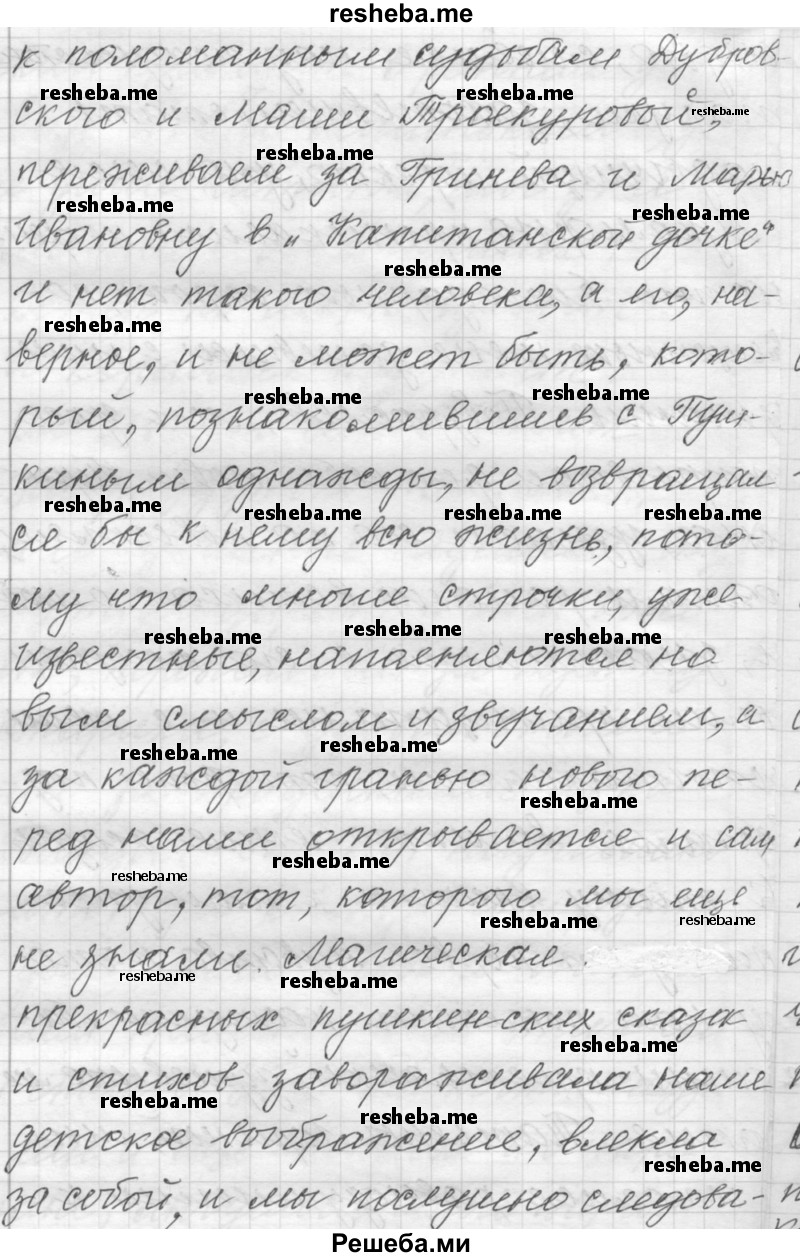 resheba.me
к поломанным судьбам Дубров-
ского и Маши Троекуровый,
переживаем за Гринева и Марью
Ивановну в „Капитанской дочке“
и нет такого человека, а его, на-
верное, и не может быть, кото-
рый, познакомившись с Пуш-
киным однажды, не возвращал
ся бы к нему всю жизнь, пото-
му что многие строчки, уже
известные, наполняются но
вым смыслом и звучанием, а
за каждой гранью нового пе-
ред нами открывается и сам
автор, тот, которого мы еще
не знали. Магическая
прекрасных пушкинских сказок
и стихов завораживала наше
детское воображение, влекла
за собой, и мы послушно следова-
Решеба.ми